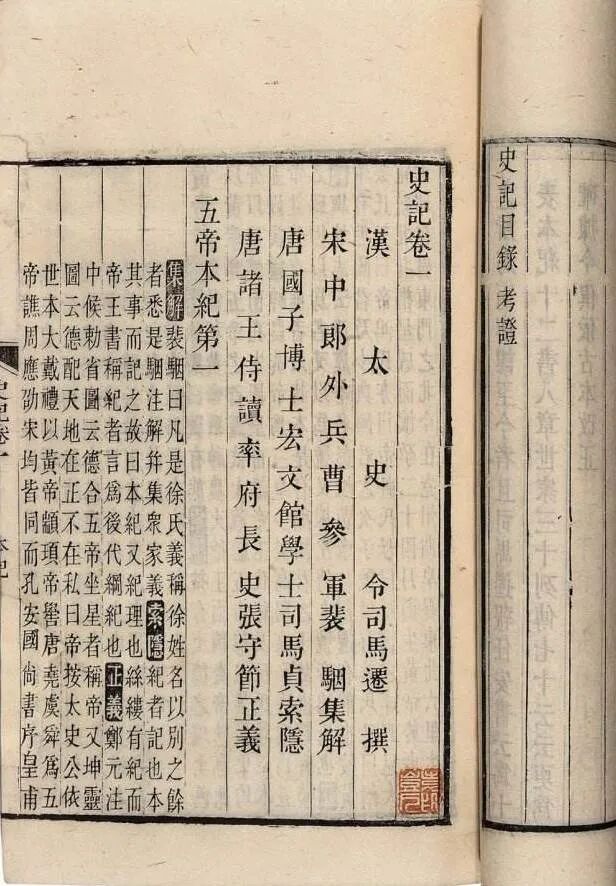 史記目錄 考證
史記卷一
漢太史令司馬遷撰
宋中郎外兵曹參軍裴駰集解
唐國子博士宏文館學士司馬貞索隱
唐諸王侍讀率府長史張守節正義
五帝本紀第一
集解裴駰曰凡是徐氏義稱徐姓名以別之餘
者悉是駰注解幷集衆家義索隱紀者記也本
其事而記之故曰本紀又紀理也絲縷有紀而
帝王書稱紀者言爲後代綱紀也正義鄭元注
中候勑省圖云德合五帝坐星者稱帝又坤靈
圖云德配天地在正不在私曰帝按太史公依
世本大戴禮以黃帝顓頊帝嚳唐堯虞舜爲五
帝譙周應劭宋均皆同而孔安國尚書序皇甫
史記卷一 本紀